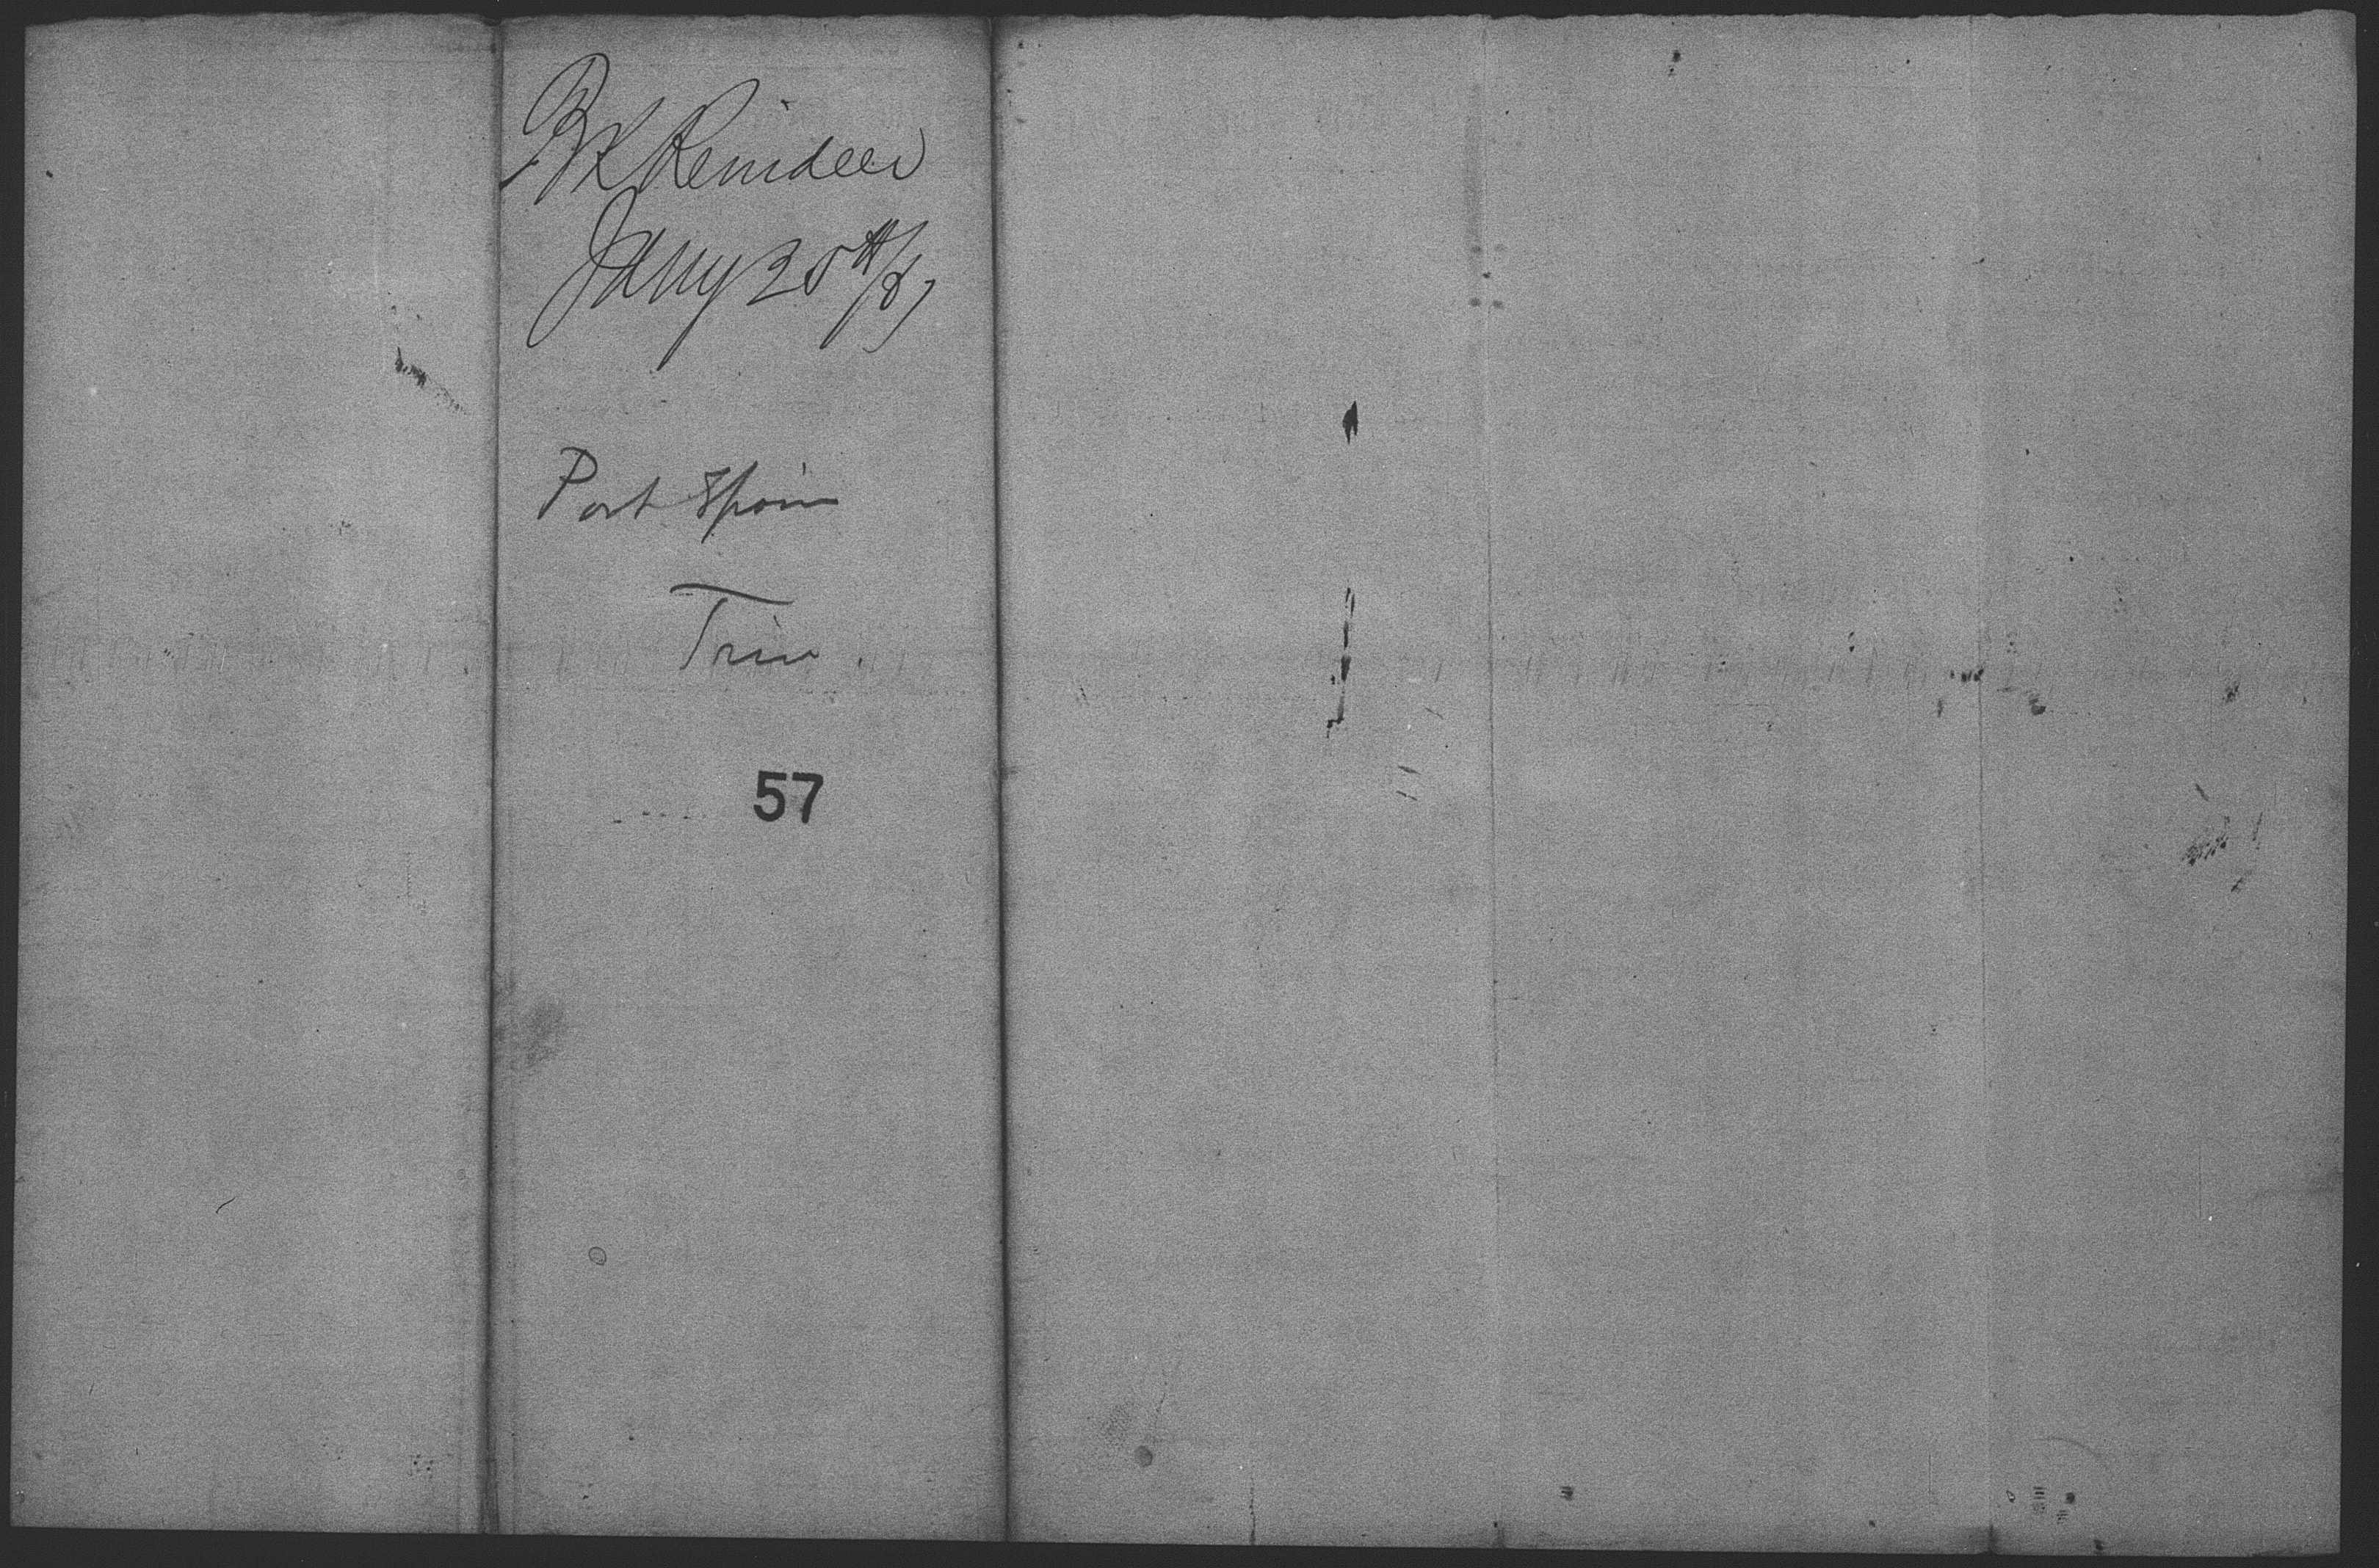 Bk Reindeer
Jany 25th/87
Port Spain
Trin
57